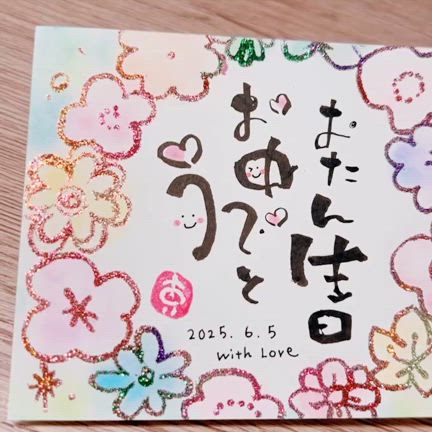 おたん生日
おめでと
う
2025.6.5
with Love